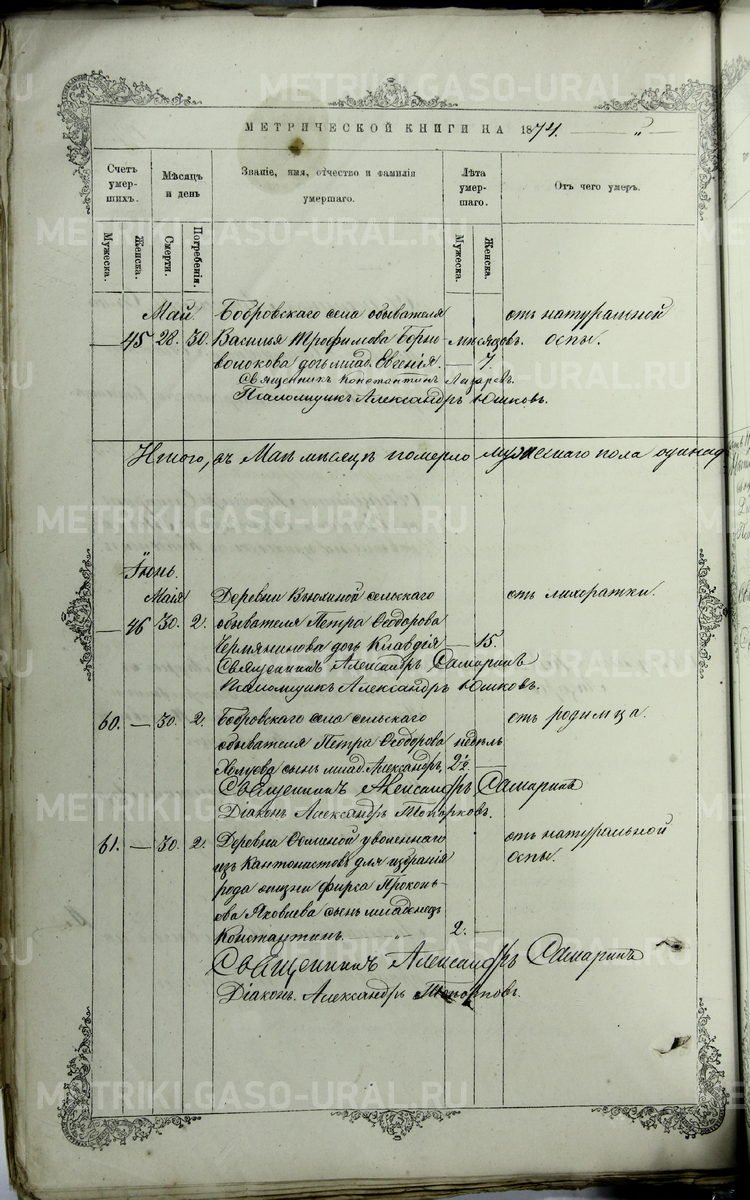 МЕТРИЧЕСКОЙ КНИГИ НА 1874. "
Счетъ умер- шихъ. Мѣсяцъ и день Званіе, имя, отчество и фамилія умершаго. Лѣта умер- шаго. Отъ чего умеръ.
Мужеска. Женска. Смерти. Погребенія. Мужеска. Женска.
Май. Бобровскаго села обывателя отъ натуральной
— 45 28. 30. Василья Трофимова Борно- мѣсяцовъ. оспы.
волокова дочь млад. Евгенія. — 7.
Священникъ Константинъ Лазаревъ.
Псаломщикъ Александръ Юшковъ.
Итого, въ Маѣ мѣсяцѣ померло мужескаго пола одинад
Іюнь.
Мая Деревни Вьюхиной сельскаго отъ лихоратки.
— 46 30. 2. обывателя Петра Ѳеодорова
Чермянинова дочь Клавдія — 15.
Священникъ Александръ Самаринъ
Псаломщикъ Александръ Юшковъ.
60. — 30. 2. Бобровскаго села сельскаго отъ родимца.
обывателя Петра Ѳеодорова недѣль
сынъ млад. Александръ, 2½ —
Священникъ Александръ Самаринъ
Діаконъ Александръ Топорковъ.
61. — 30. 2. Деревни уволеннаго отъ натуральной
изъ Кантонистовъ для избранія оспы.
рода жизни Фирса Прокопь-
ова Яковлева сынъ младенецъ
Константинъ. " 2. —
Священникъ Александръ Самаринъ
Діаконъ. Александръ Топорковъ.
METRIKI.GASO-URAL.RU